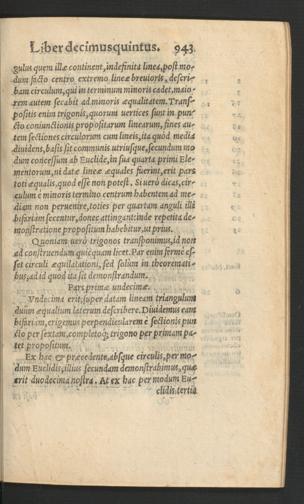 Liber decimusquintus. 943.
gulus quem illæ continent, indefinita linea, post mo-
dum facto centro extremo lineæ breuioris, descri-
bam circulum, qui in terminum minoris cadet, maio-
rem autem secabit ad minoris æqualitatem. Transf-
positis enim trigonis, quorum uertices sunt in pun-
cto coniunctionis propositarum linearum, fines au-
tem sectiones circulorum cum lineis, ita quod media
diuidens, basis sit communis utriusque, secundum mo
dum concessum ab Euclide, in sua quarta primi Ele-
mentorum, ni datæ lineæ æquales fuerint, erit pars
toti æqualis, quod esse non potest. Si uerò dicas, cir-
culum è minoris termino centrum habentem ad me-
diam non peruenire, toties per quartam anguli illi
bifariam secentur, donec attingant: inde repetita de-
monstratione propositum habebitur, ut prius.
Quoniam uerò trigonos transponimus, id non
ad construendum quicquam licet. Par enim fermè es-
set circuli æquilationi, sed solùm in theoremati-
bus, ad id quod ita sit demonstrandum.
Pars primæ undecimæ.
Vndecima erit, super datam lineam triangulum
duûm æqualium laterum describere. Diuidemus eam
bifariam, erigemus perpendicularem è sectionis pun
cto per sextam, completoq; trigono per primam pa-
tet propositum.
Ex hac & præcedente, absque circulis, per mo-
dum Euclidis, illius secundam demonstrabimus, quæ
erit duodecima nostra. At ex hac per modum Eu-
clidis, tertia